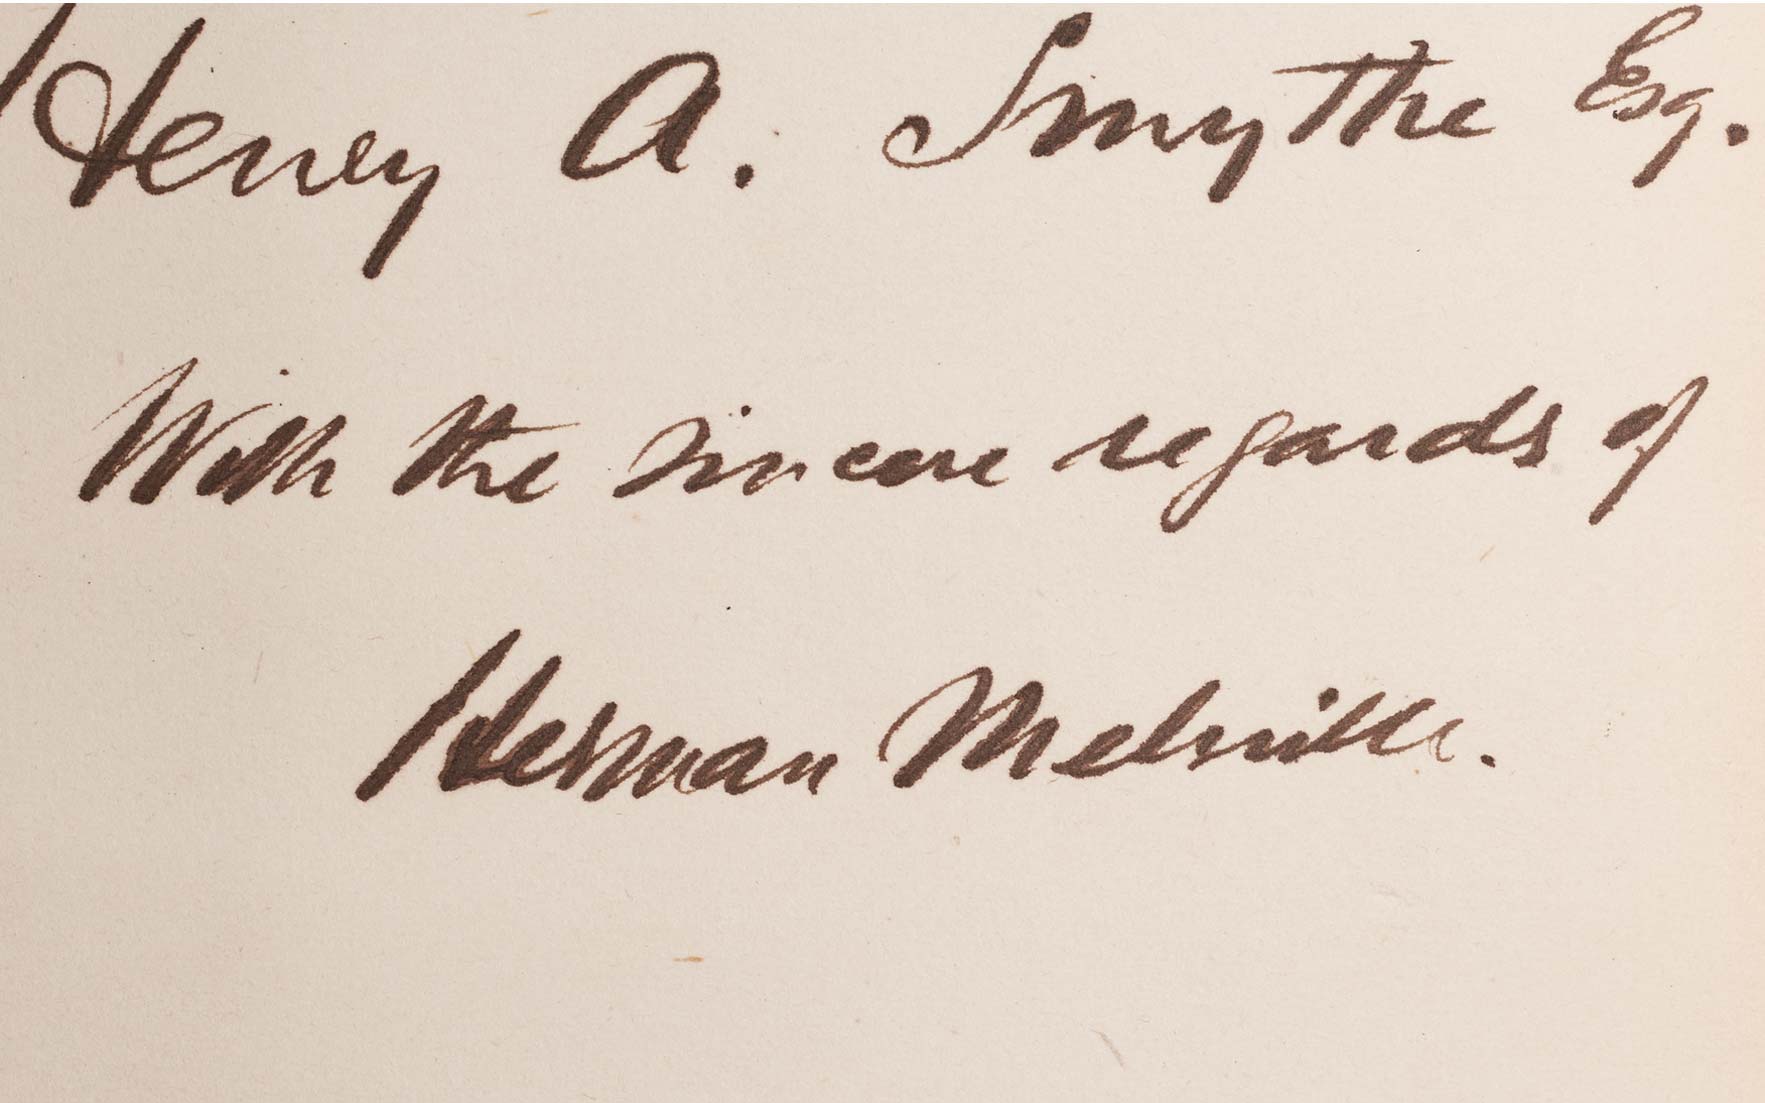 Henry A. Smythe Esq.
With the sincere regards of
Herman Melville.